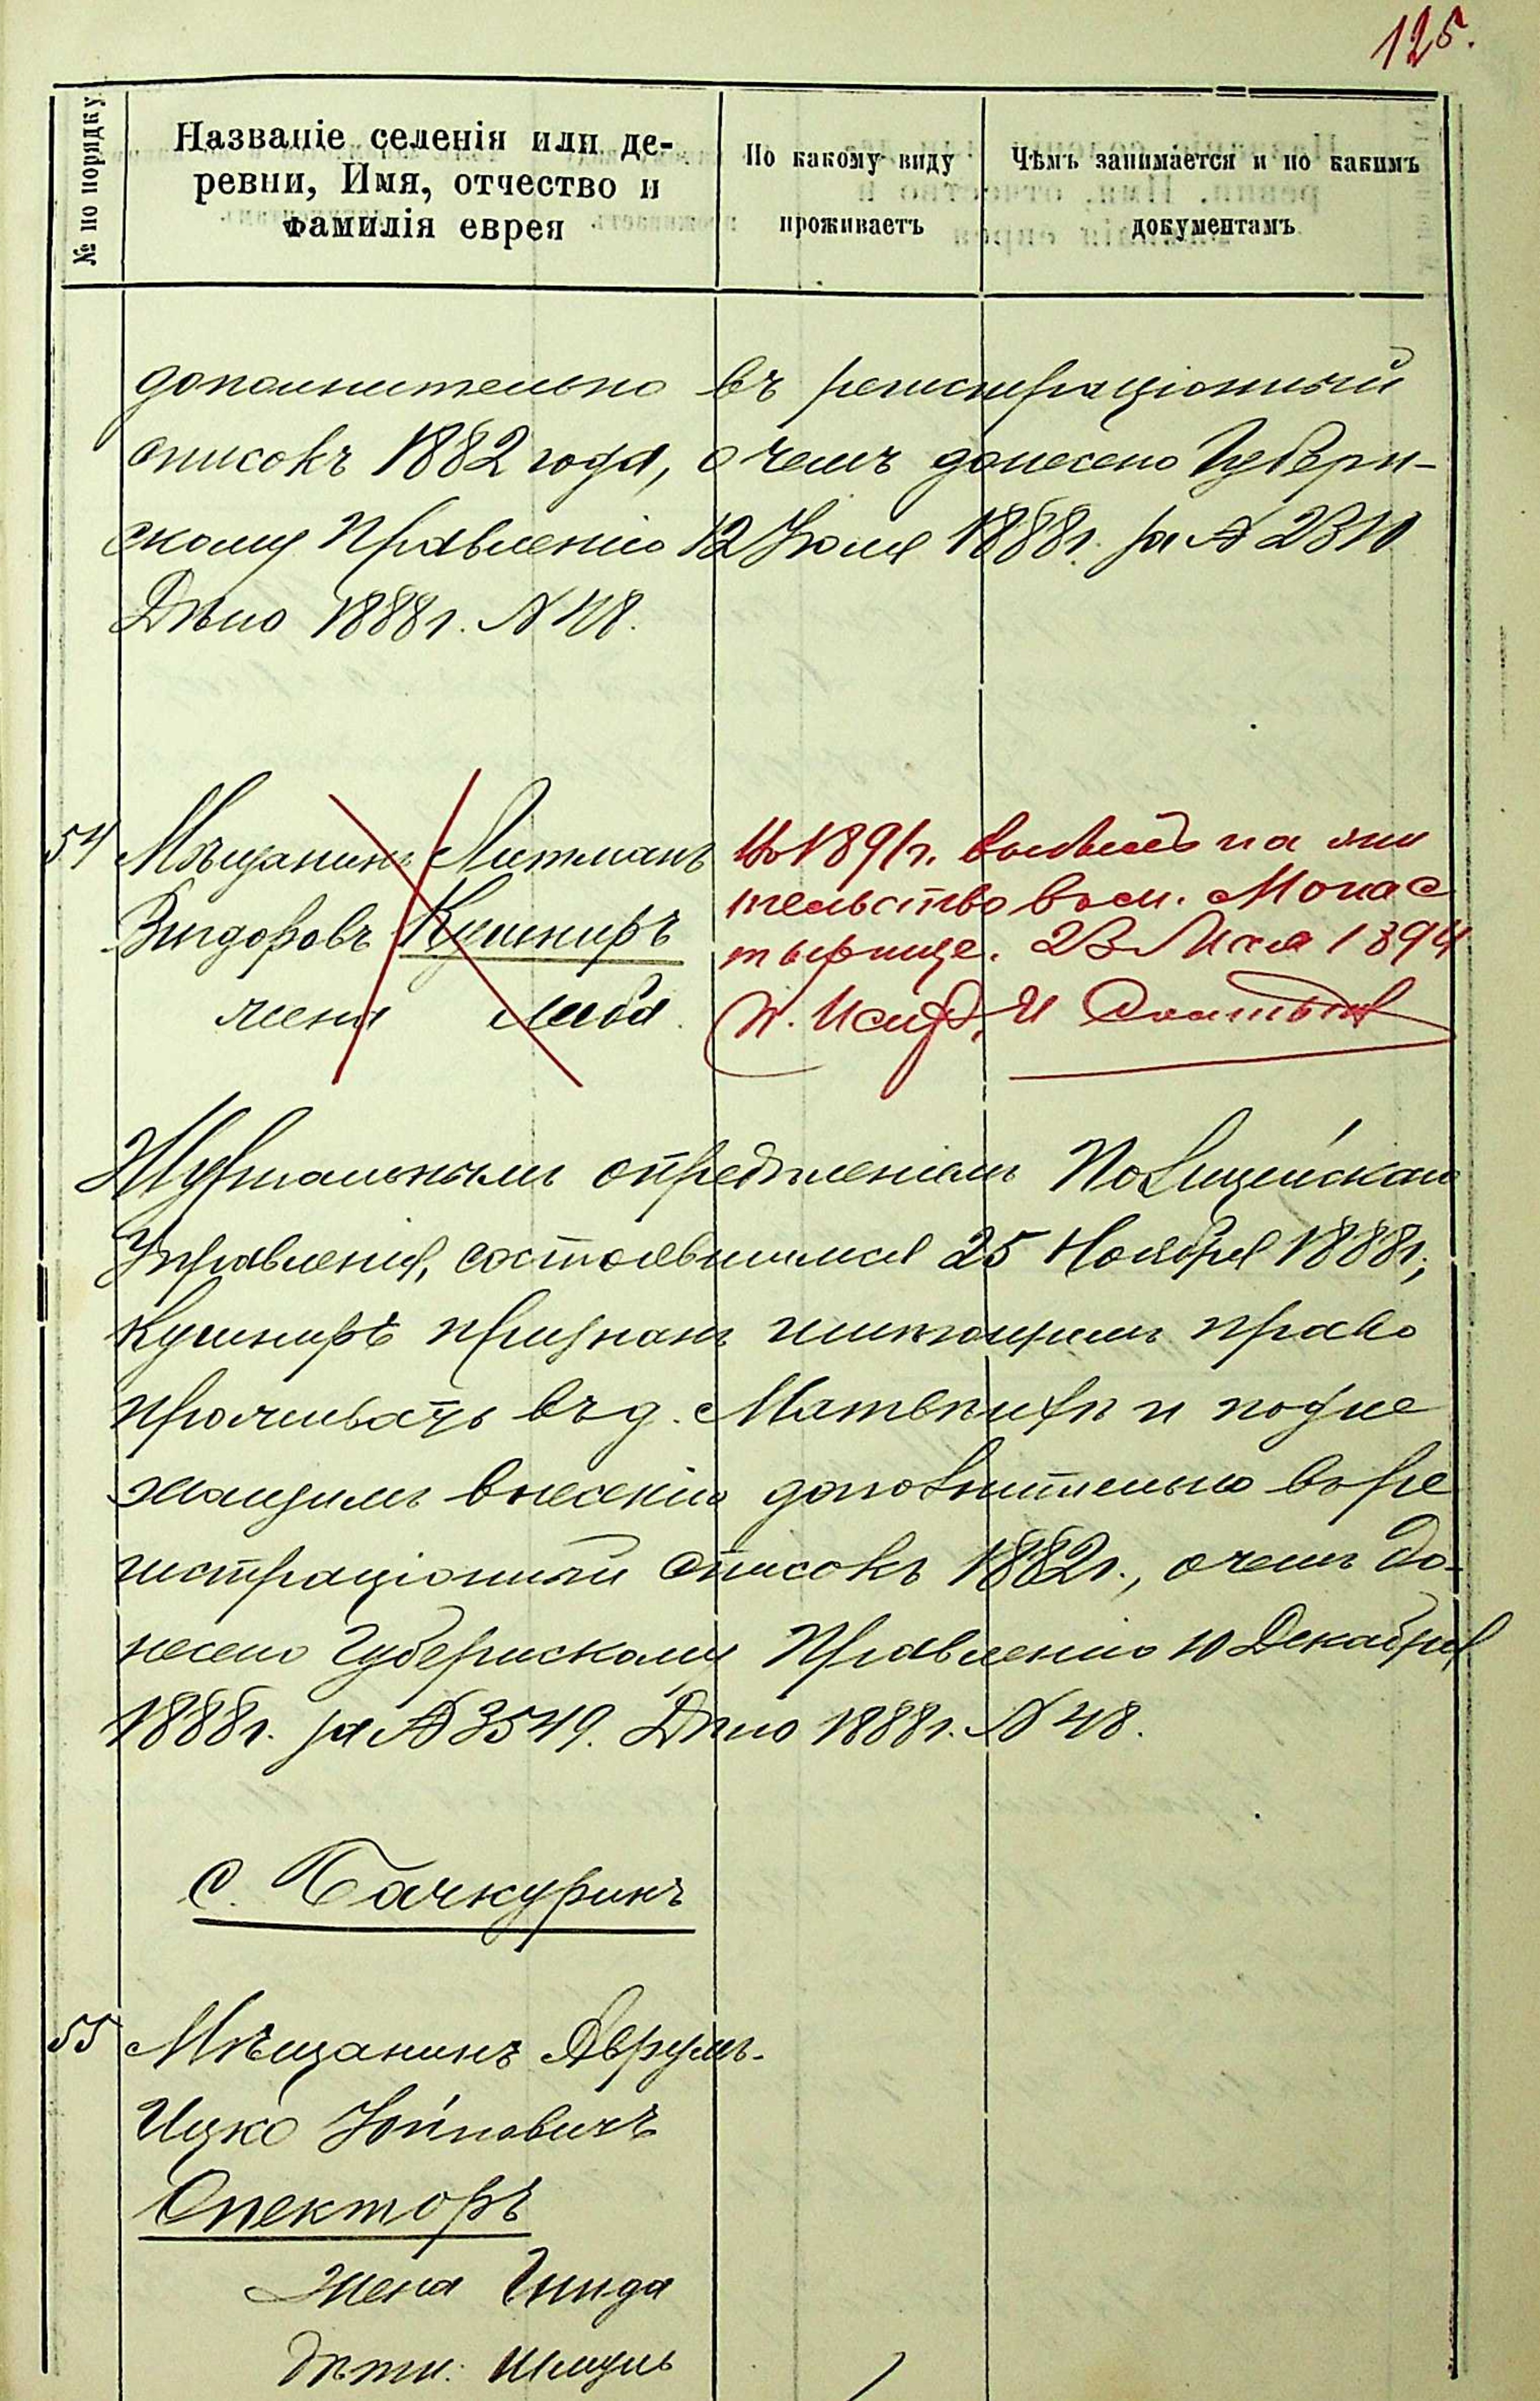 125.
№ по порядку
Названіе селенія или де-
ревни, Имя, отчество и
Фамилія еврея
По какому виду
проживаетъ
Чѣмъ занимается и по какимъ
документамъ
дополнительно въ регистраціонный
списокъ 1882 года, о чемъ донесено Губерн-
скому Правленію 12 Іюля 1888г. за № 2310
Дѣло 1888г. № 48.
54 Мѣщанинъ Литманъ
Вигдоровъ Кушниръ
жена Либа
Въ 1891г. выбылъ на жи
тельство въ м. Монас
тырище. 23 Мая 1894
Журнальнымъ опредѣленіемъ Полицейскаго
Управленія, состоявшимся 25 Ноября 1888г.,
Кушниръ признанъ имѣющимъ право
проживать въ д. Матвѣихѣ и подле
жащимъ внесенію дополнительно въ ре
гистраціонный списокъ 1882г., о чемъ до-
несено Губернскому Правленію 10 Декабря
1888г. за № 3549. Дѣло 1888г. № 48.
с. Бачкуринъ
55 Мѣщанинъ Аврумъ-
Ицко Іойновичъ
Спекторъ
жена Гинда
дѣти: